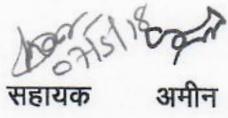 07/5/18
सहायक अमीन